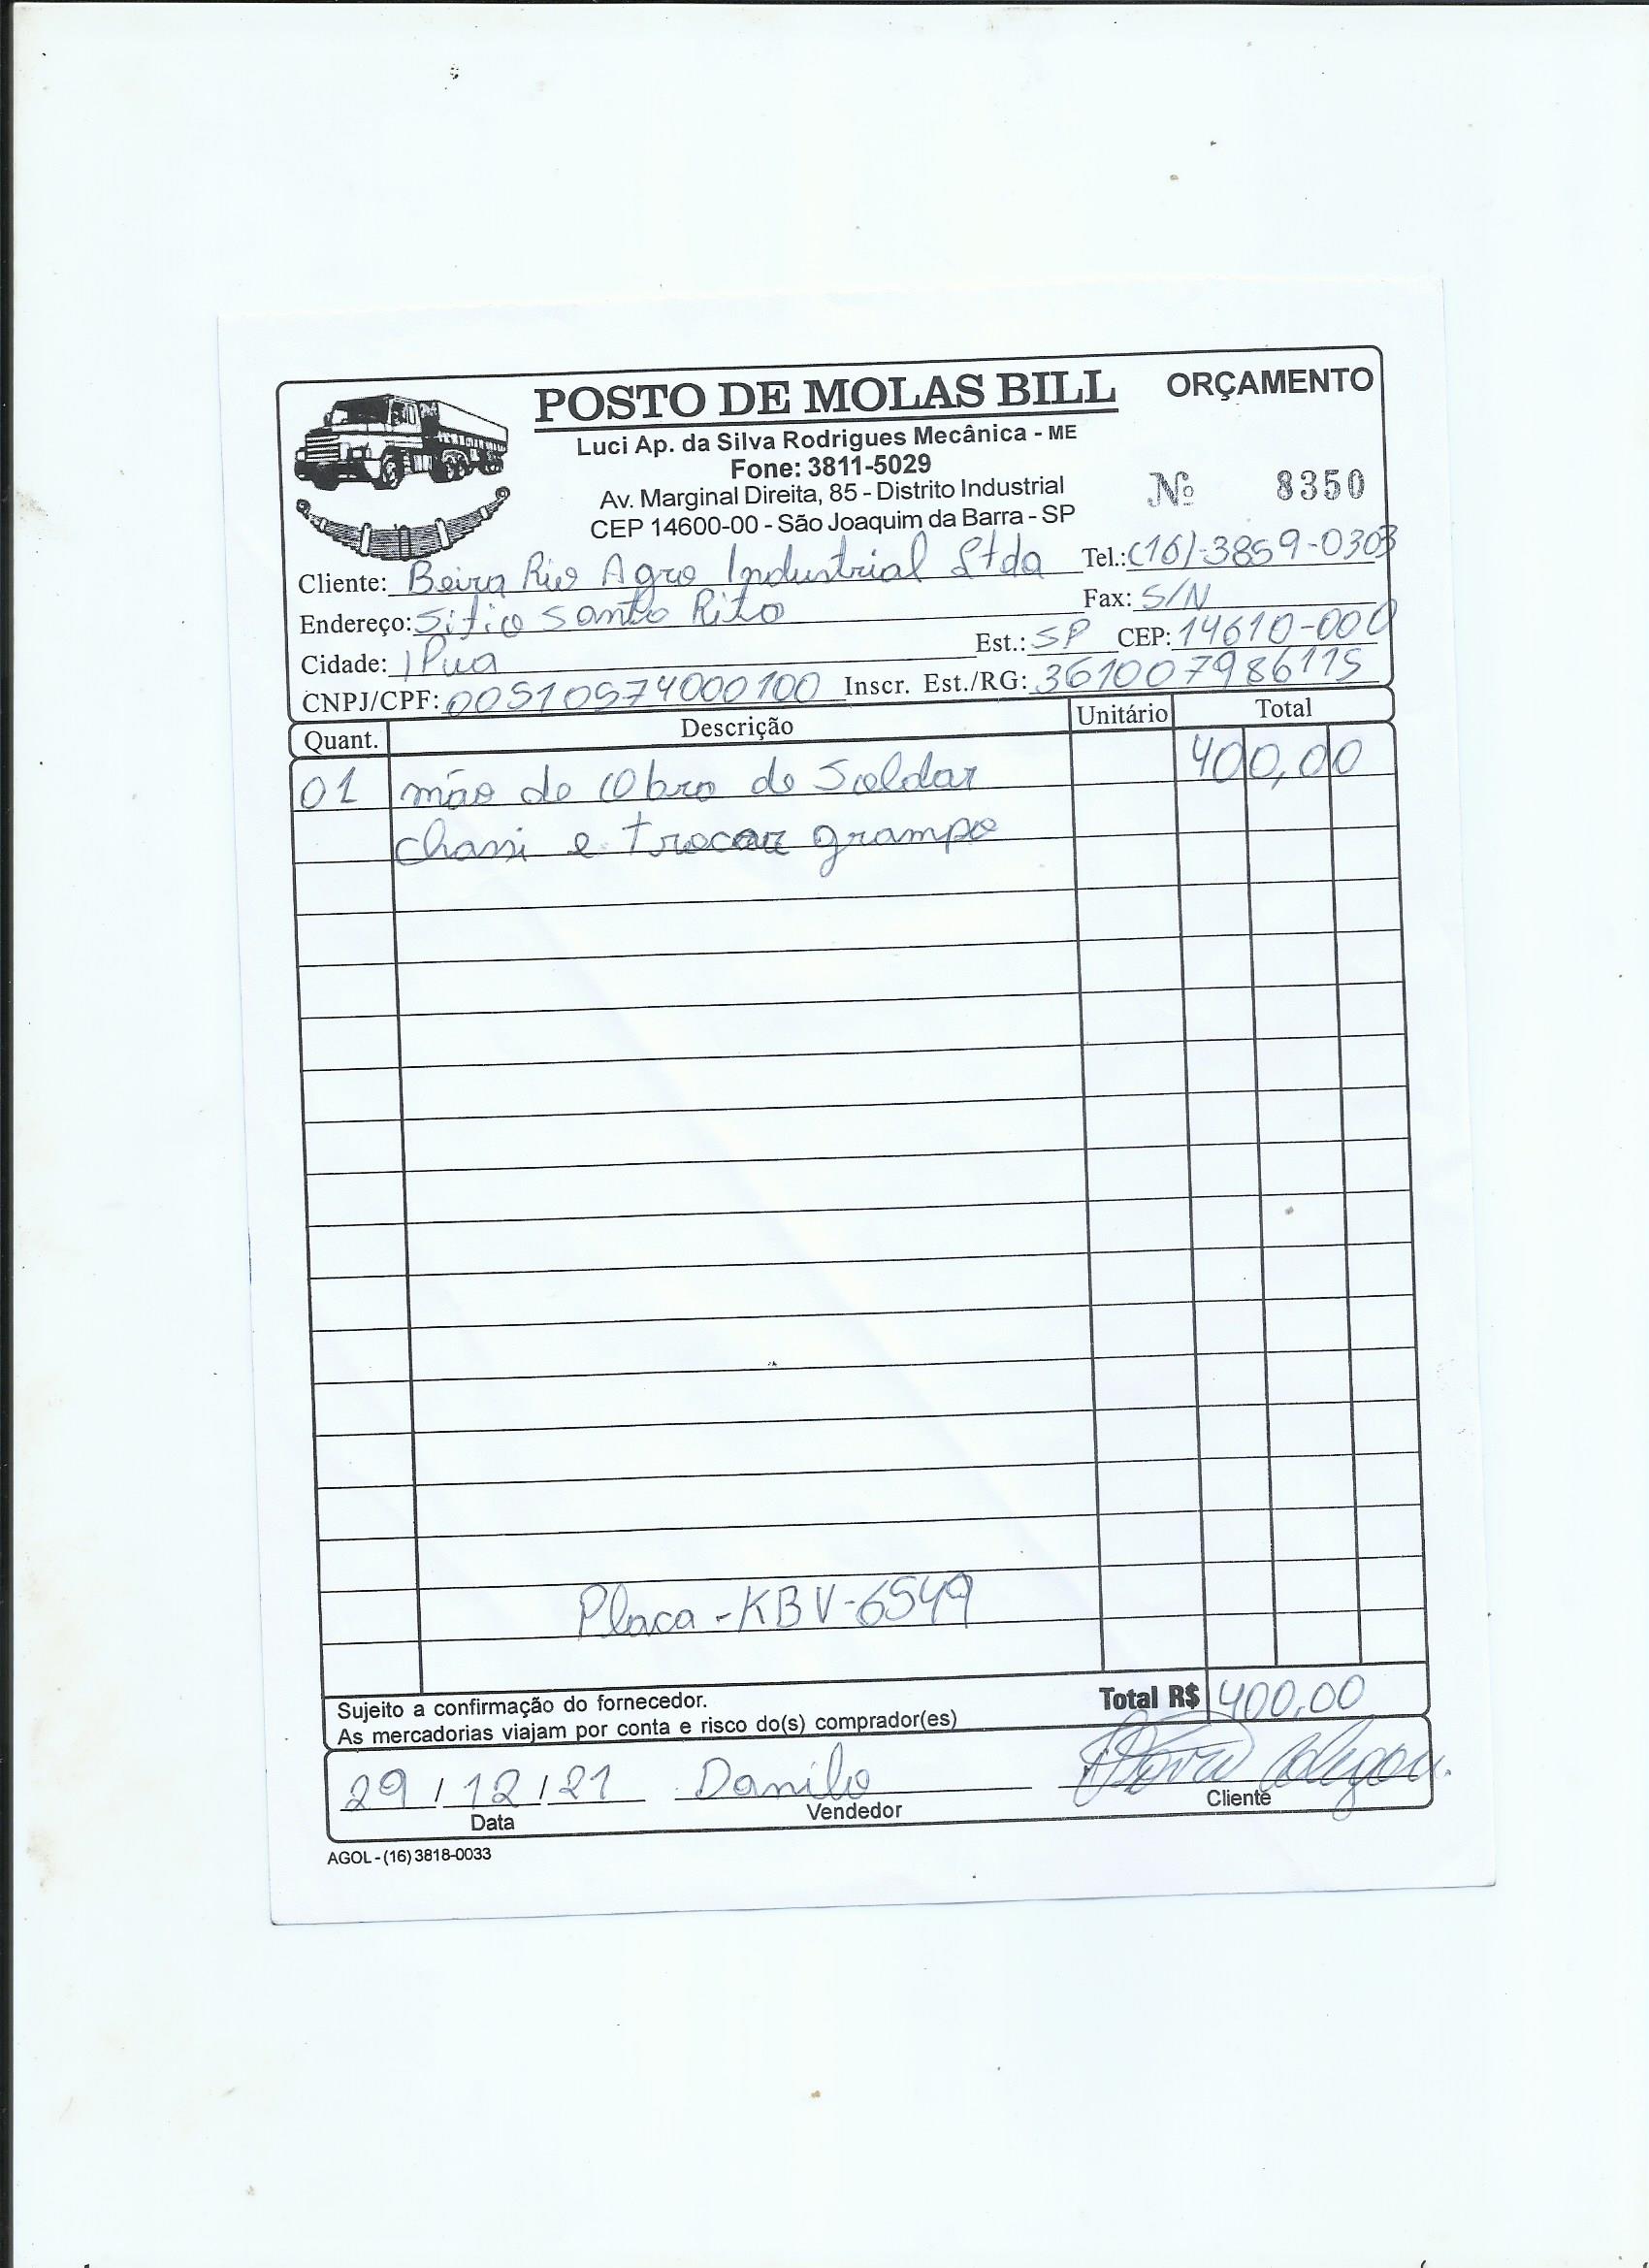 POSTO DE MOLAS BILL ORÇAMENTO
Luci Ap. da Silva Rodrigues Mecânica - ME
Fone: 3811-5029
Av. Marginal Direita, 85 - Distrito Industrial
CEP 14600-00 - São Joaquim da Barra - SP
Nº 8350
Cliente: Beira Rio Agro Industrial Ltda Tel.: (16)-3859-0303
Endereço: Sitio Santo Rito Fax: S/N
Cidade: IPua Est.: SP CEP: 14610-000
CNPJ/CPF: 00510574000100 Inscr. Est./RG: 361007986115
Quant. Descrição Unitário Total
01 mão de Obro de Soldar 400,00
chassi e trocar grampo
Placa - KBV-6549
Sujeito a confirmação do fornecedor.
As mercadorias viajam por conta e risco do(s) comprador(es)
Total R$ 400,00
29/12/21 Danilo
Data Vendedor Cliente
AGOL - (16) 3818-0033